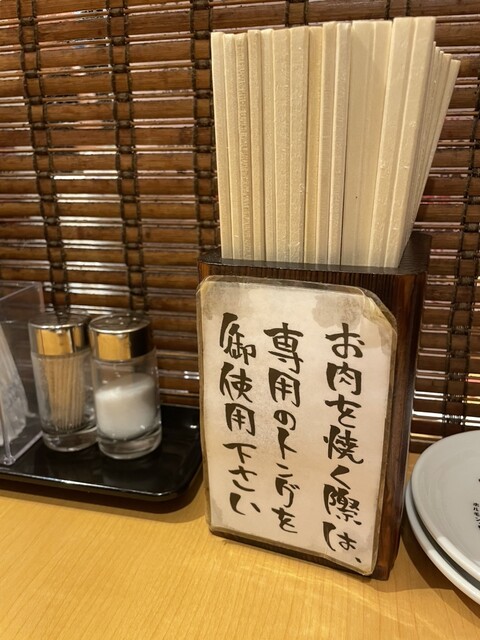 お肉を焼く際は、
専用のトングを
御使用下さい